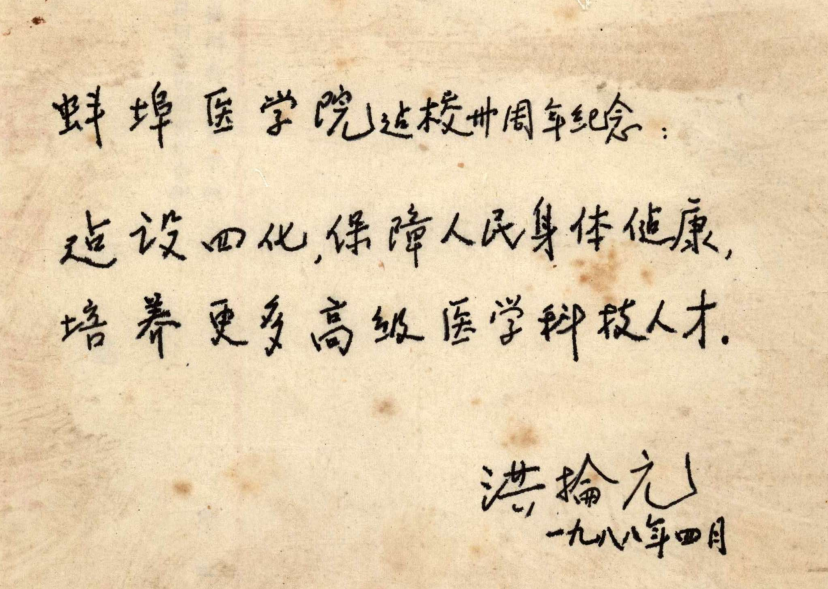 蚌埠医学院建校卅周年纪念:
建设四化,保障人民身体健康,
培养更多高级医学科技人才.
洪掄元
一九八八年四月